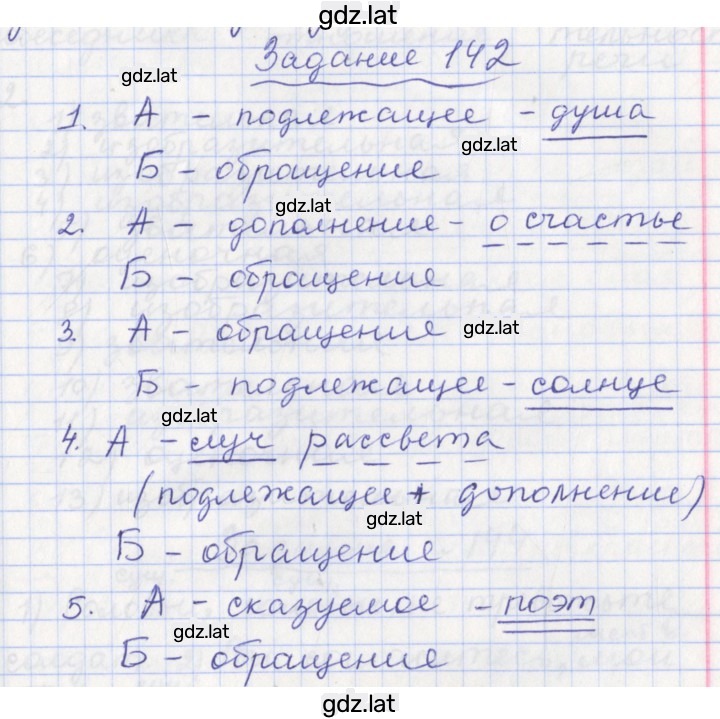 gdz.lat
Задание 142
gdz.lat
1. А – подлежащее – душа
gdz.lat
Б – обращение
gdz.lat
2. А – дополнение – о счастье
Б – обращение
3. А – обращение gdz.lat
Б – подлежащее – солнце
gdz.lat
4. А – луч рассвета
(подлежащее + дополнение)
gdz.lat
Б – обращение
5. А – сказуемое – поэт
gdz.lat
Б – обращение
gdz.lat